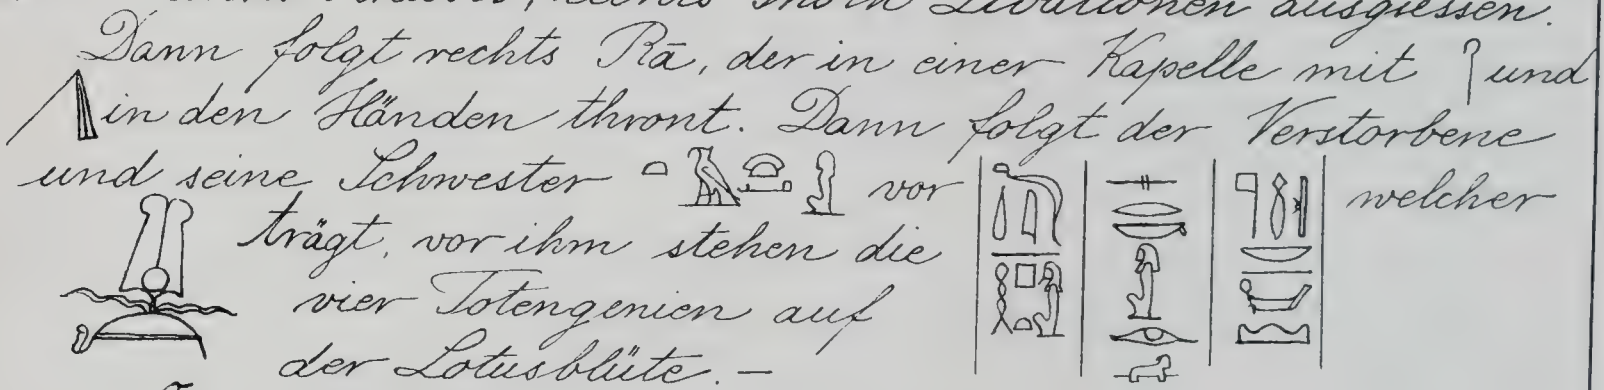 rechts Libationen ausgiessen.
Dann folgt rechts Rā, der in einer Kapelle mit und
in den Händen thront. Dann folgt der Verstorbene
und seine Schwester vor welcher
trägt, vor ihm stehen die
vier Totengenien auf
der Lotusblüte. —